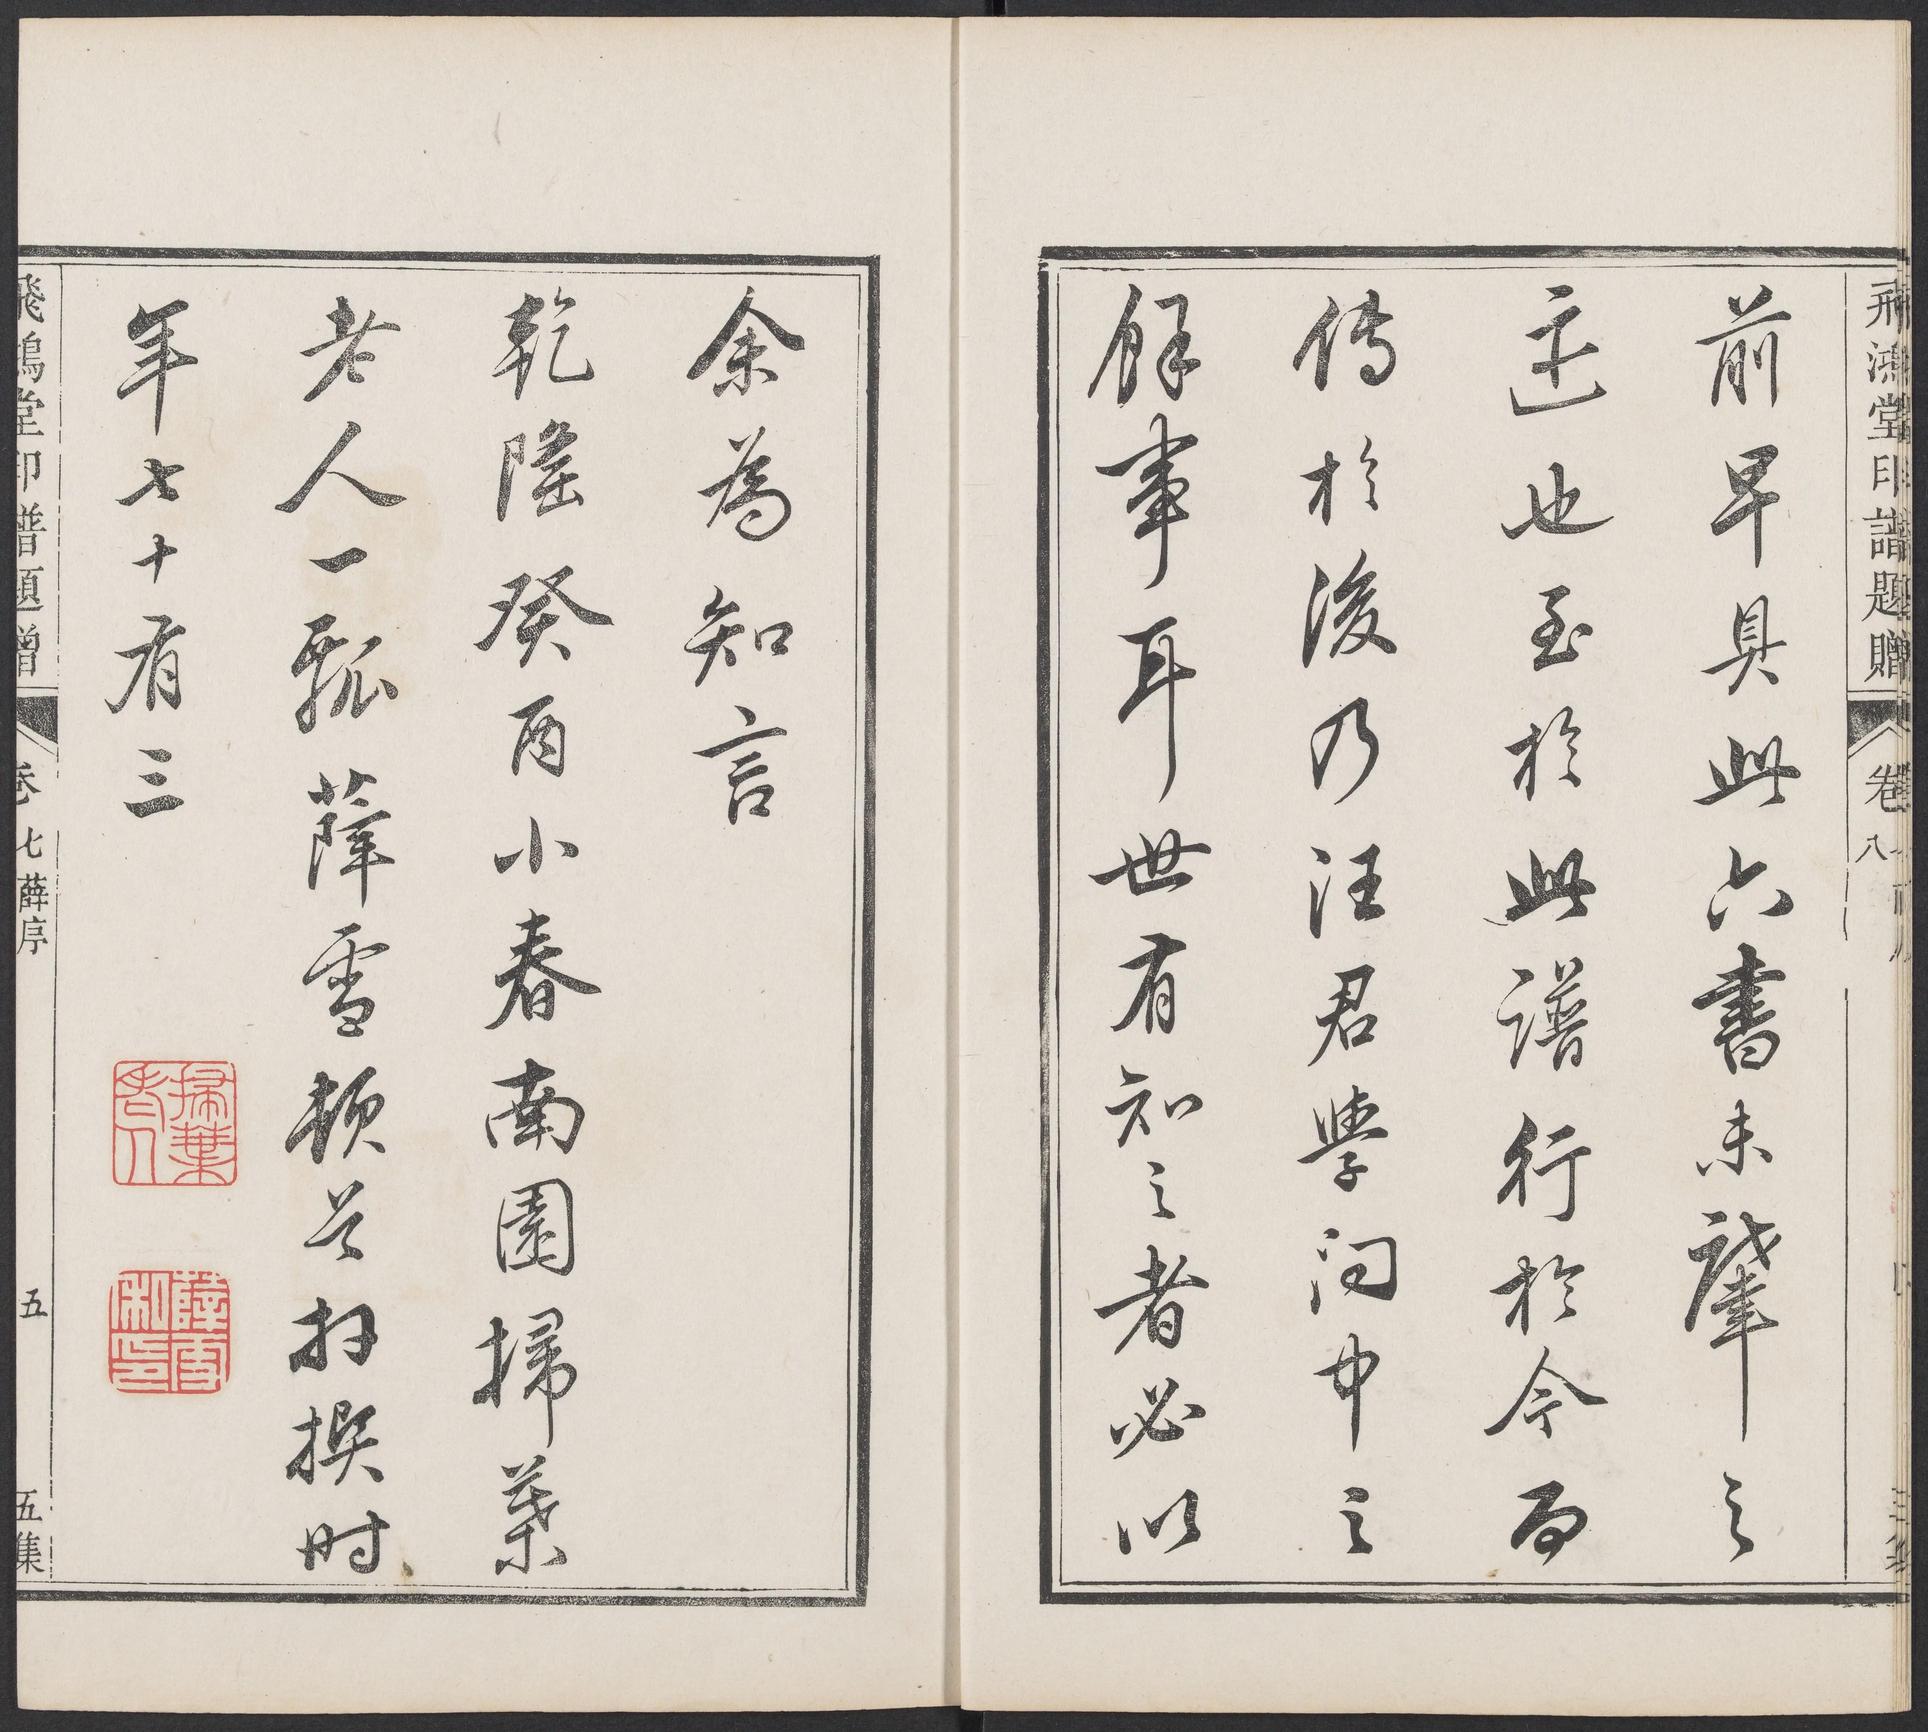 飛鴻堂印譜題贈 卷 八
前早具此六書未肇之
迹也至於此譜行於今而
傳於後乃汪君學問中之
餘事耳世有知之者必以
余為知言
乾隆癸酉小春南園掃葉
老人一瓢薛雪頓首拜撰时
年七十有三
掃葉老人
薛雪私印
飛鴻堂印譜題贈 卷七 薛序 五 五集